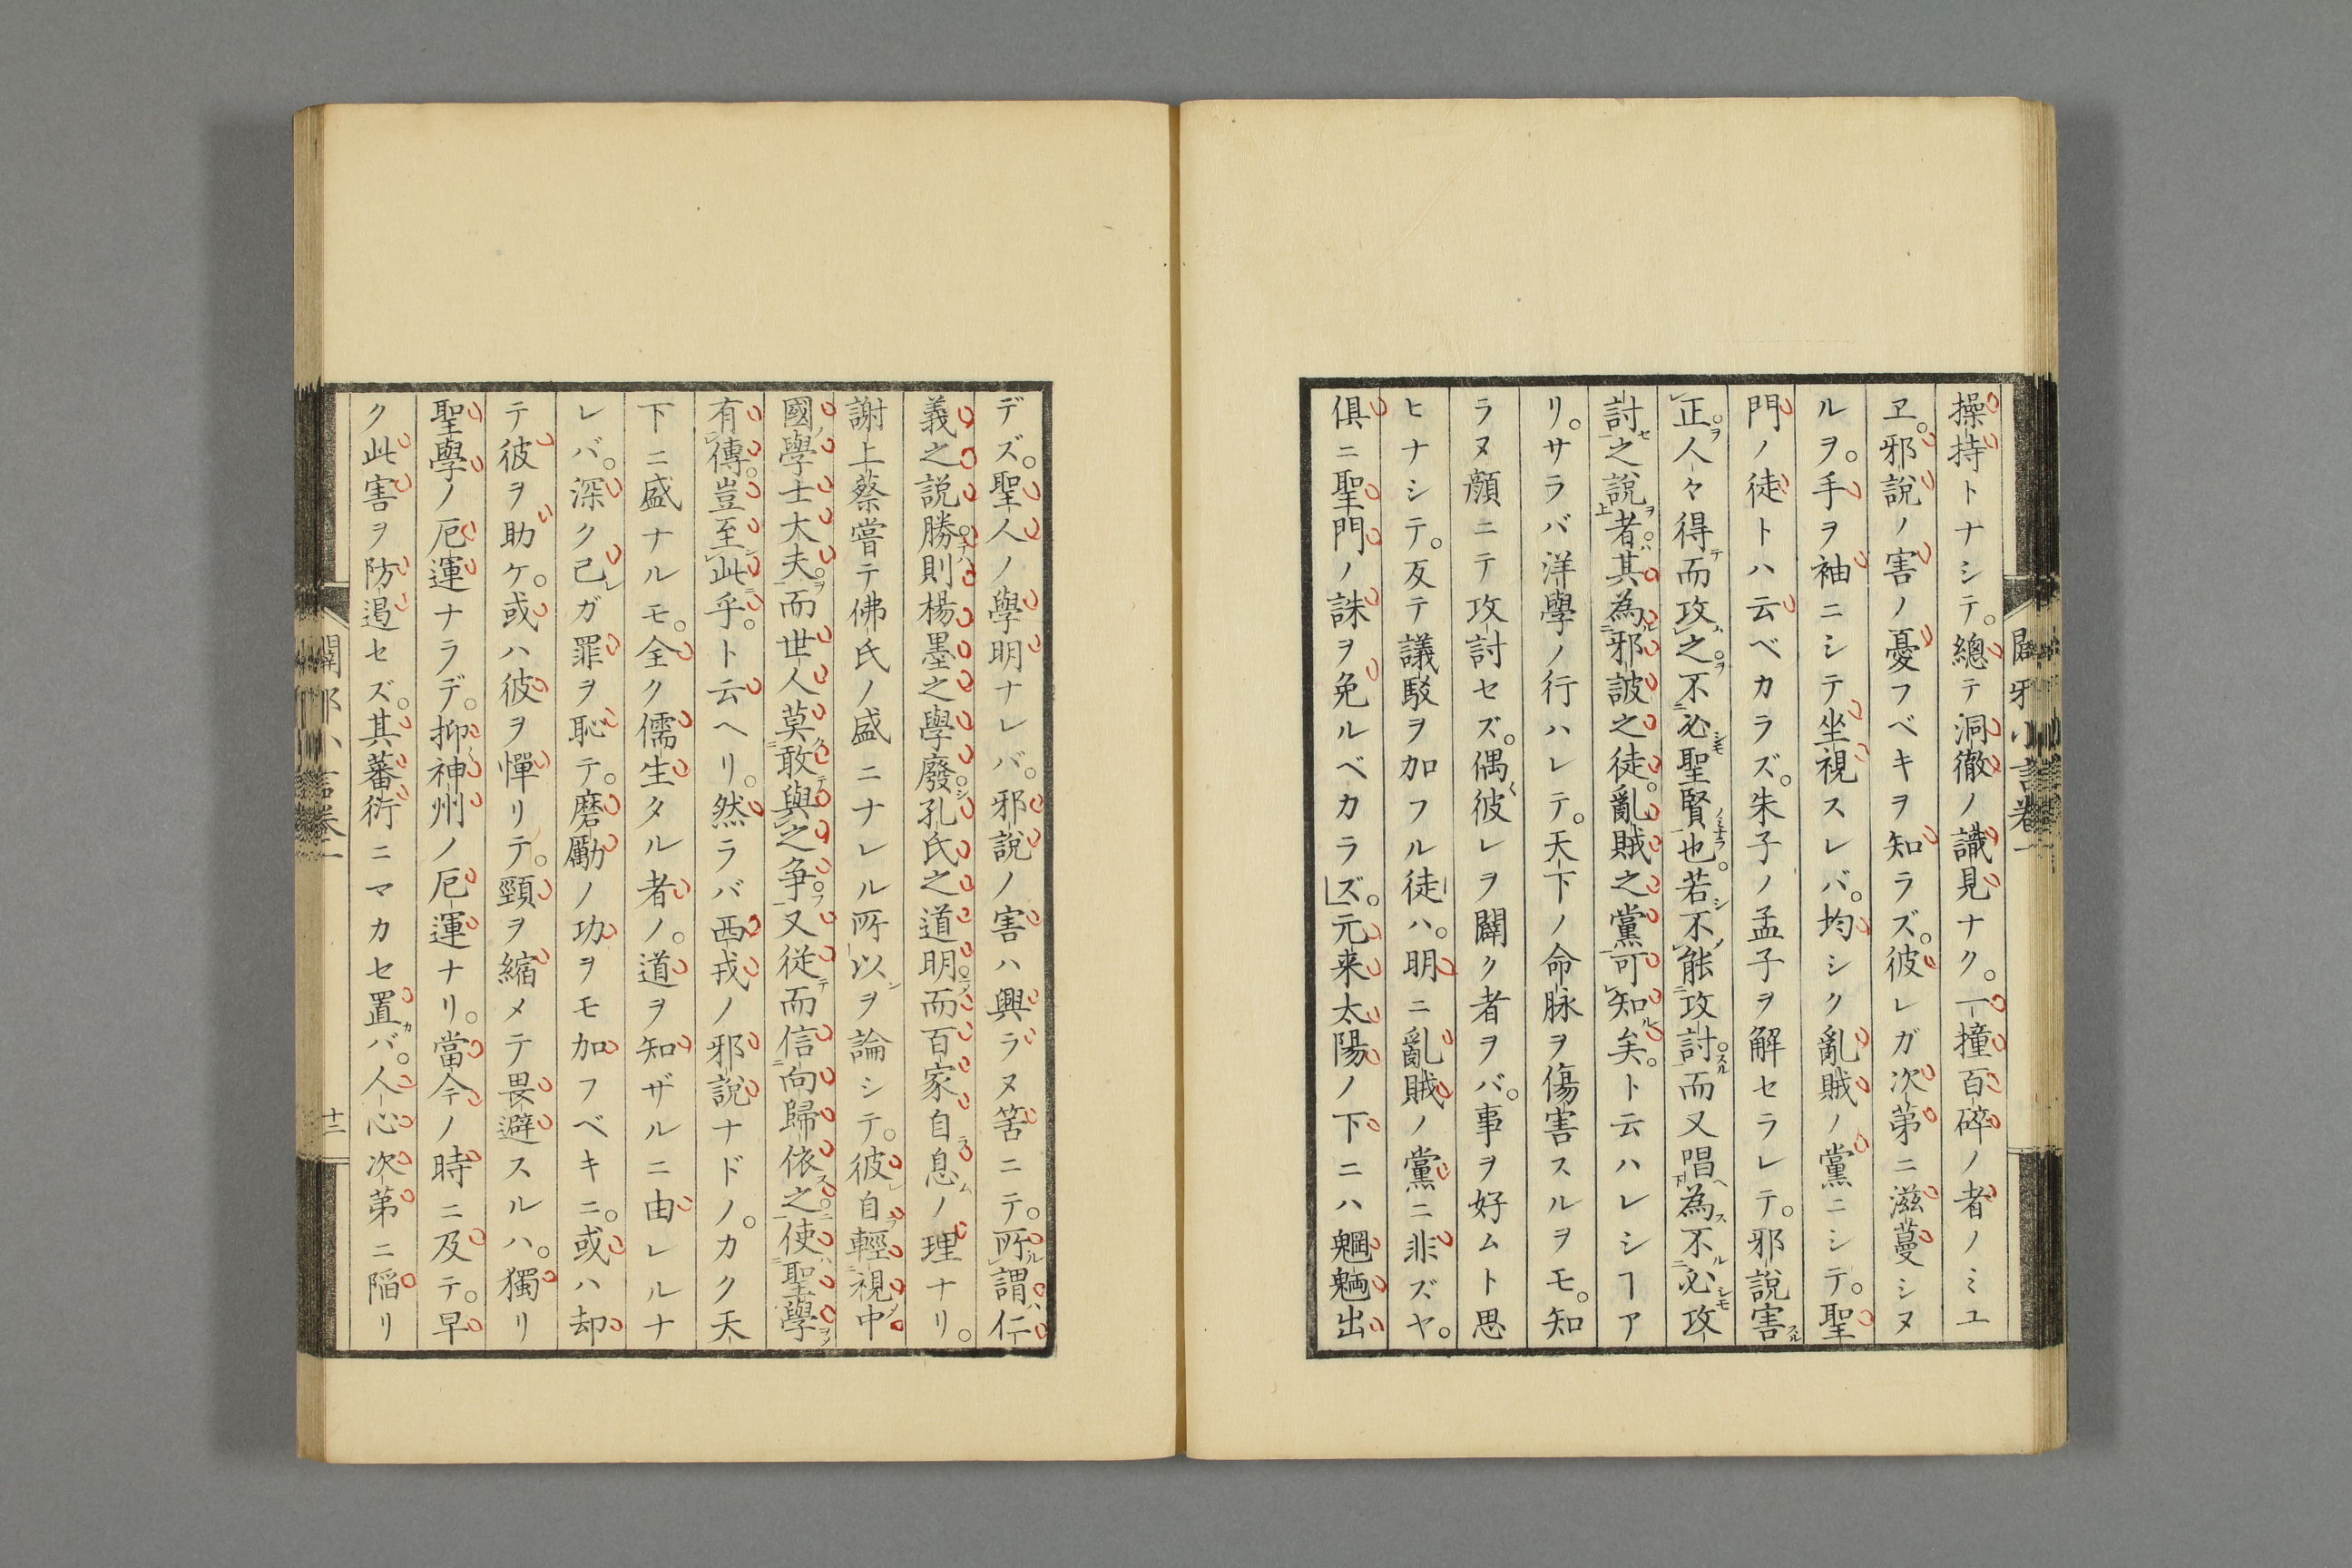 操持トナシテ。總テ洞徹ノ識見ナク。一撞百碎ノ者ノミユ
ヱ。邪說ノ害ノ憂フベキヲ知ラズ。彼レガ次第ニ滋蔓シヌ
ルヲ。手ヲ袖ニシテ坐視スレバ。均シク亂賊ノ黨ニシテ。聖
門ノ徒トハ云ベカラズ。朱子ノ孟子ヲ解セラレテ。邪說害
正。人々得而攻之。不必聖賢也。若不能攻討。而又唱為不必攻
討之說者。其為邪詖之徒。亂賊之黨可知矣。ト云ハレシヿア
リ。サラバ洋學ノ行ハレテ。天下ノ命脉ヲ傷害スルヲモ。知
ラヌ顏ニテ攻討セズ。偶〱彼レヲ闢ク者ヲバ。事ヲ好ムト思
ヒナシテ。反テ議駁ヲ加フル徒ハ。明ニ亂賊ノ黨ニ非ズヤ。
俱ニ聖門ノ誅ヲ免ルベカラズ。元来太陽ノ下ニハ魍魎出
デズ。聖人ノ學明ナレバ。邪說ノ害ハ興ラヌ筈ニテ。所謂仁
義之說勝。則楊墨之學廢。孔氏之道明。而百家自息ノ理ナリ。
謝上蔡嘗テ佛氏ノ盛ニナレル所以ヲ論シテ。彼自輕視中
國學士大夫。而世人莫敢與之争。又従而信向歸依之。使聖學
有傳。豈至此乎。ト云ヘリ。然ラバ西戎ノ邪說ナドノ。カク天
下ニ盛ナルモ。全ク儒生タル者ノ。道ヲ知ザルニ由レルナ
レバ。深ク己レガ罪ヲ恥テ。磨勵ノ功ヲモ加フベキニ。或ハ却
テ彼ヲ助ケ。或ハ彼ヲ憚リテ。頸ヲ縮メテ畏避スルハ。獨リ
聖學ノ厄運ナラデ。抑〱神州ノ厄運ナリ。當今ノ時ニ及テ。早
ク此害ヲ防遏セズ。其蕃衍ニマカセ置カバ。人心次第ニ陷リ
十二